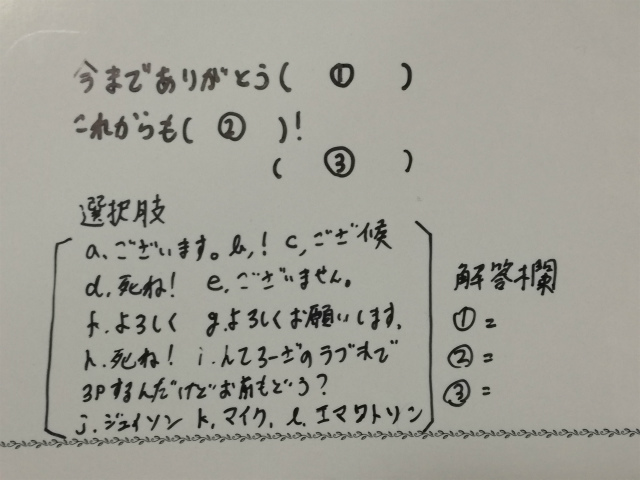 今までありがとう( ① )
これからも( ② )!
( ③ )
選択肢
a、ございます。b,! c,ござ候
d,死ね! e,ございません。
f.よろしく g.よろしくお願いします.
h.死ね! i.んてろーざのラブホで
3Pするんだけどお前もどう?
j.ジェイソン k,マイク, l.エマワトソン
解答欄
①=
②=
③=